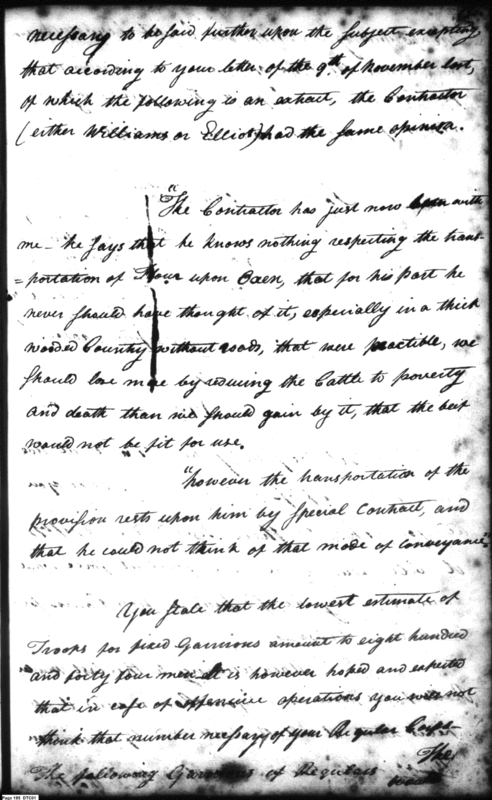 necessary to be said further upon the subject excepting
that according to your letter of the 9th of November last,
of which the following is an extract, the Contractor
(either Williams or Elliot) had the same opinion.
"The Contractor has just now been with
me - he says that he knows nothing respecting the trans-
=portation of Flour upon Oxen, that for his part he
never should have thought of it, especially in a thick
wooded Country without roads, that were practible, we
should lose more by reducing the Cattle to poverty
and death than we should gain by it, that the beef
would not be fit for use.
"however the transportation of the
provision rests upon him by special Contract, and
that he could not think of that mode of conveyance"
You state that the lowest estimate of
Troops for fixed Garrisons amount to eight hundred
and forty four men It is however hoped and expected
that in case of offensive operations you will not
think that number necessary of your Regular Corps
The
The following Garrisons of Regulars
Page 195 DTC01